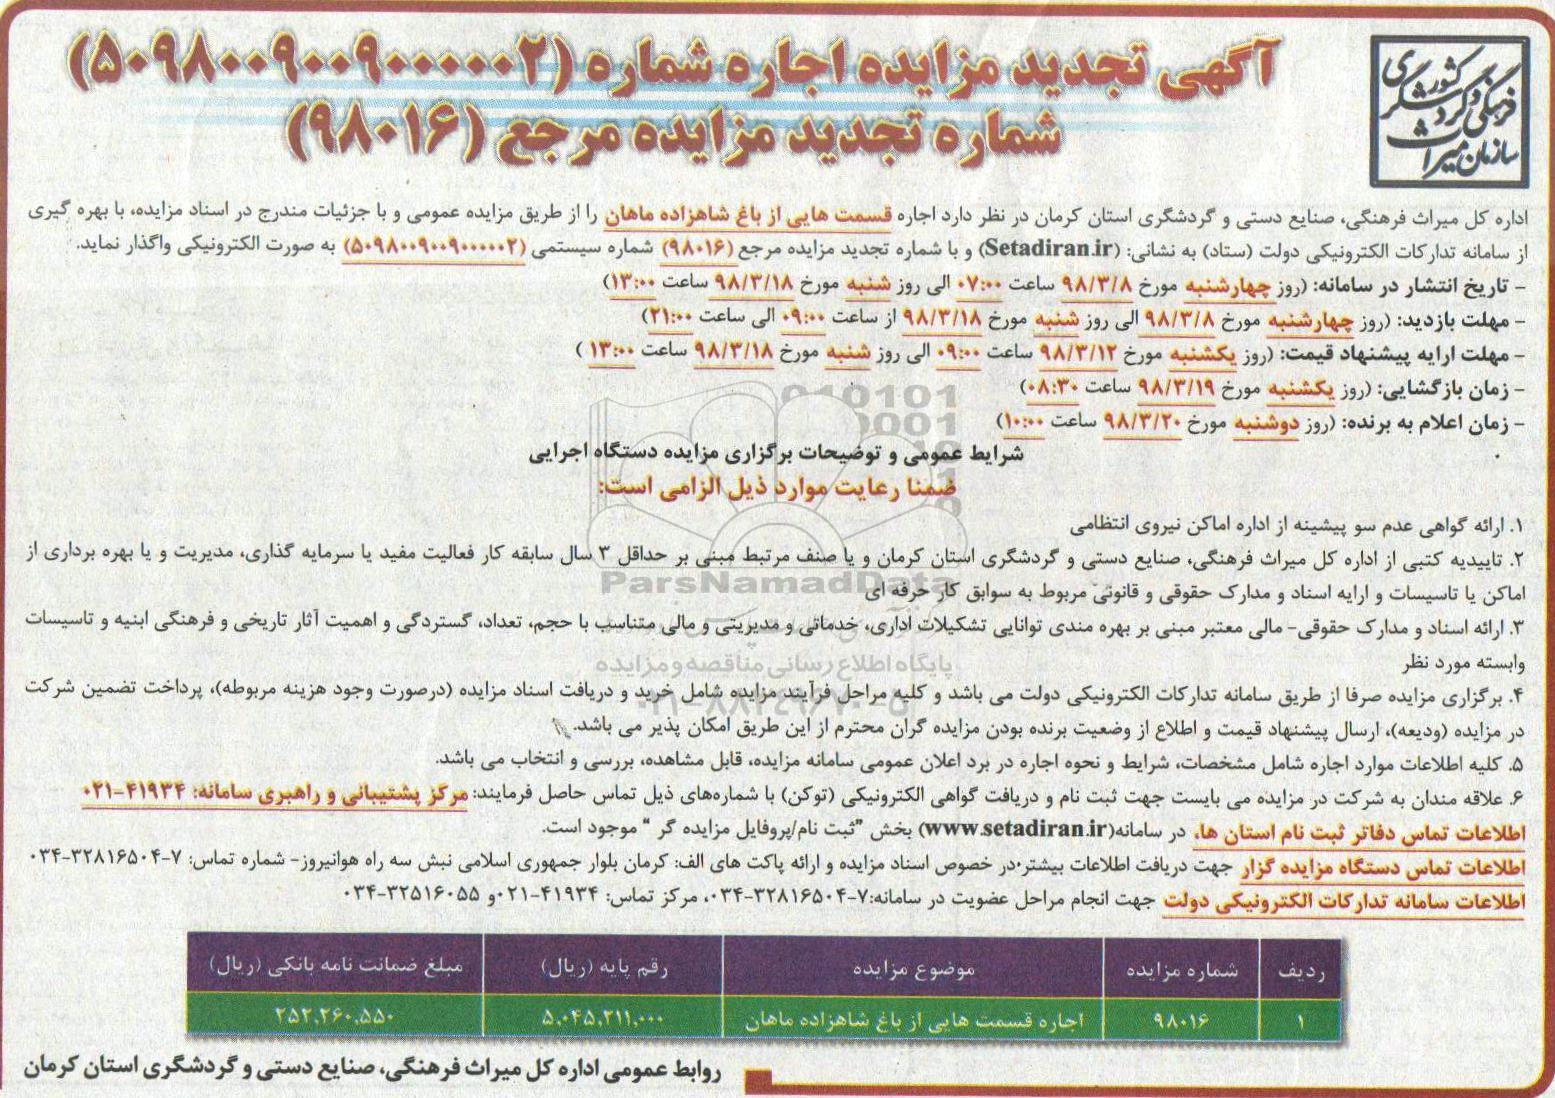 سازمان میراث فرهنگی و گردشگری کشور
آگهی تجدید مزایده اجاره شماره (۵۰۹۸۰۰۹۰۰۹۰۰۰۰۰۲)
شماره تجدید مزایده مرجع (۹۸۰۱۶)
اداره کل میراث فرهنگی، صنایع دستی و گردشگری استان کرمان در نظر دارد اجاره قسمت هایی از باغ شاهزاده ماهان را از طریق مزایده عمومی و با جزئیات مندرج در اسناد مزایده، با بهره گیری
از سامانه تدارکات الکترونیکی دولت (ستاد) به نشانی: (Setadiran.ir) و با شماره تجدید مزایده مرجع (۹۸۰۱۶) شماره سیستمی (۵۰۹۸۰۰۹۰۰۹۰۰۰۰۰۲) به صورت الکترونیکی واگذار نماید.
- تاریخ انتشار در سامانه: (روز چهارشنبه مورخ ۹۸/۳/۸ ساعت ۰۷:۰۰ الی روز شنبه مورخ ۹۸/۳/۱۸ ساعت ۱۳:۰۰)
- مهلت بازدید: (روز چهارشنبه مورخ ۹۸/۳/۸ الی روز شنبه مورخ ۹۸/۳/۱۸ از ساعت ۰۹:۰۰ الی ساعت ۲۱:۰۰)
- مهلت ارایه پیشنهاد قیمت: (روز یکشنبه مورخ ۹۸/۳/۱۲ ساعت ۰۹:۰۰ الی روز شنبه مورخ ۹۸/۳/۱۸ ساعت ۱۳:۰۰ )
- زمان بازگشایی: (روز یکشنبه مورخ ۹۸/۳/۱۹ ساعت ۰۸:۳۰)
- زمان اعلام به برنده: (روز دوشنبه مورخ ۹۸/۳/۲۰ ساعت ۱۰:۰۰)
شرایط عمومی و توضیحات برگزاری مزایده دستگاه اجرایی
ضمنا رعایت موارد ذیل الزامی است:
۱. ارائه گواهی عدم سو پیشینه از اداره اماکن نیروی انتظامی
۲. تاییدیه کتبی از اداره کل میراث فرهنگی، صنایع دستی و گردشگری استان کرمان و یا صنف مرتبط مبنی بر حداقل ۳ سال سابقه کار فعالیت مفید یا سرمایه گذاری، مدیریت و یا بهره برداری از
اماکن یا تاسیسات و ارایه اسناد و مدارک حقوقی و قانونی مربوط به سوابق کار حرفه ای
۳. ارائه اسناد و مدارک حقوقی- مالی معتبر مبنی بر بهره مندی توانایی تشکیلات اداری، خدماتی و مدیریتی و مالی متناسب با حجم، تعداد، گستردگی و اهمیت آثار تاریخی و فرهنگی ابنیه و تاسیسات
وابسته مورد نظر
۴. برگزاری مزایده صرفا از طریق سامانه تدارکات الکترونیکی دولت می باشد و کلیه مراحل فرآیند مزایده شامل خرید و دریافت اسناد مزایده (درصورت وجود هزینه مربوطه)، پرداخت تضمین شرکت
در مزایده (ودیعه)، ارسال پیشنهاد قیمت و اطلاع از وضعیت برنده بودن مزایده گران محترم از این طریق امکان پذیر می باشد.
۵. کلیه اطلاعات موارد اجاره شامل مشخصات، شرایط و نحوه اجاره در برد اعلان عمومی سامانه مزایده، قابل مشاهده، بررسی و انتخاب می باشد.
۶. علاقه مندان به شرکت در مزایده می بایست جهت ثبت نام و دریافت گواهی الکترونیکی (توکن) با شماره‌های ذیل تماس حاصل فرمایند: مرکز پشتیبانی و راهبری سامانه: ۴۱۹۳۴-۰۲۱
اطلاعات تماس دفاتر ثبت نام استان ها، در سامانه(www.setadiran.ir) بخش "ثبت نام/پروفایل مزایده گر " موجود است.
اطلاعات تماس دستگاه مزایده گزار جهت دریافت اطلاعات بیشتر در خصوص اسناد مزایده و ارائه پاکت های الف: کرمان بلوار جمهوری اسلامی نبش سه راه هوانیروز- شماره تماس: ۷-۳۲۸۱۶۵۰۴-۰۳۴
اطلاعات سامانه تدارکات الکترونیکی دولت جهت انجام مراحل عضویت در سامانه:۷-۳۲۸۱۶۵۰۴-۰۳۴، مرکز تماس: ۴۱۹۳۴-۰۲۱و ۳۲۵۱۶۰۵۵-۰۳۴
ParsNamadData
پایگاه اطلاع رسانی مناقصه و مزایده
ردیف شماره مزایده موضوع مزایده رقم پایه (ریال) مبلغ ضمانت نامه بانکی (ریال)
۱ ۹۸۰۱۶ اجاره قسمت هایی از باغ شاهزاده ماهان ۵,۰۴۵,۲۱۱,۰۰۰ ۲۵۲,۲۶۰,۵۵۰
روابط عمومی اداره کل میراث فرهنگی، صنایع دستی و گردشگری استان کرمان